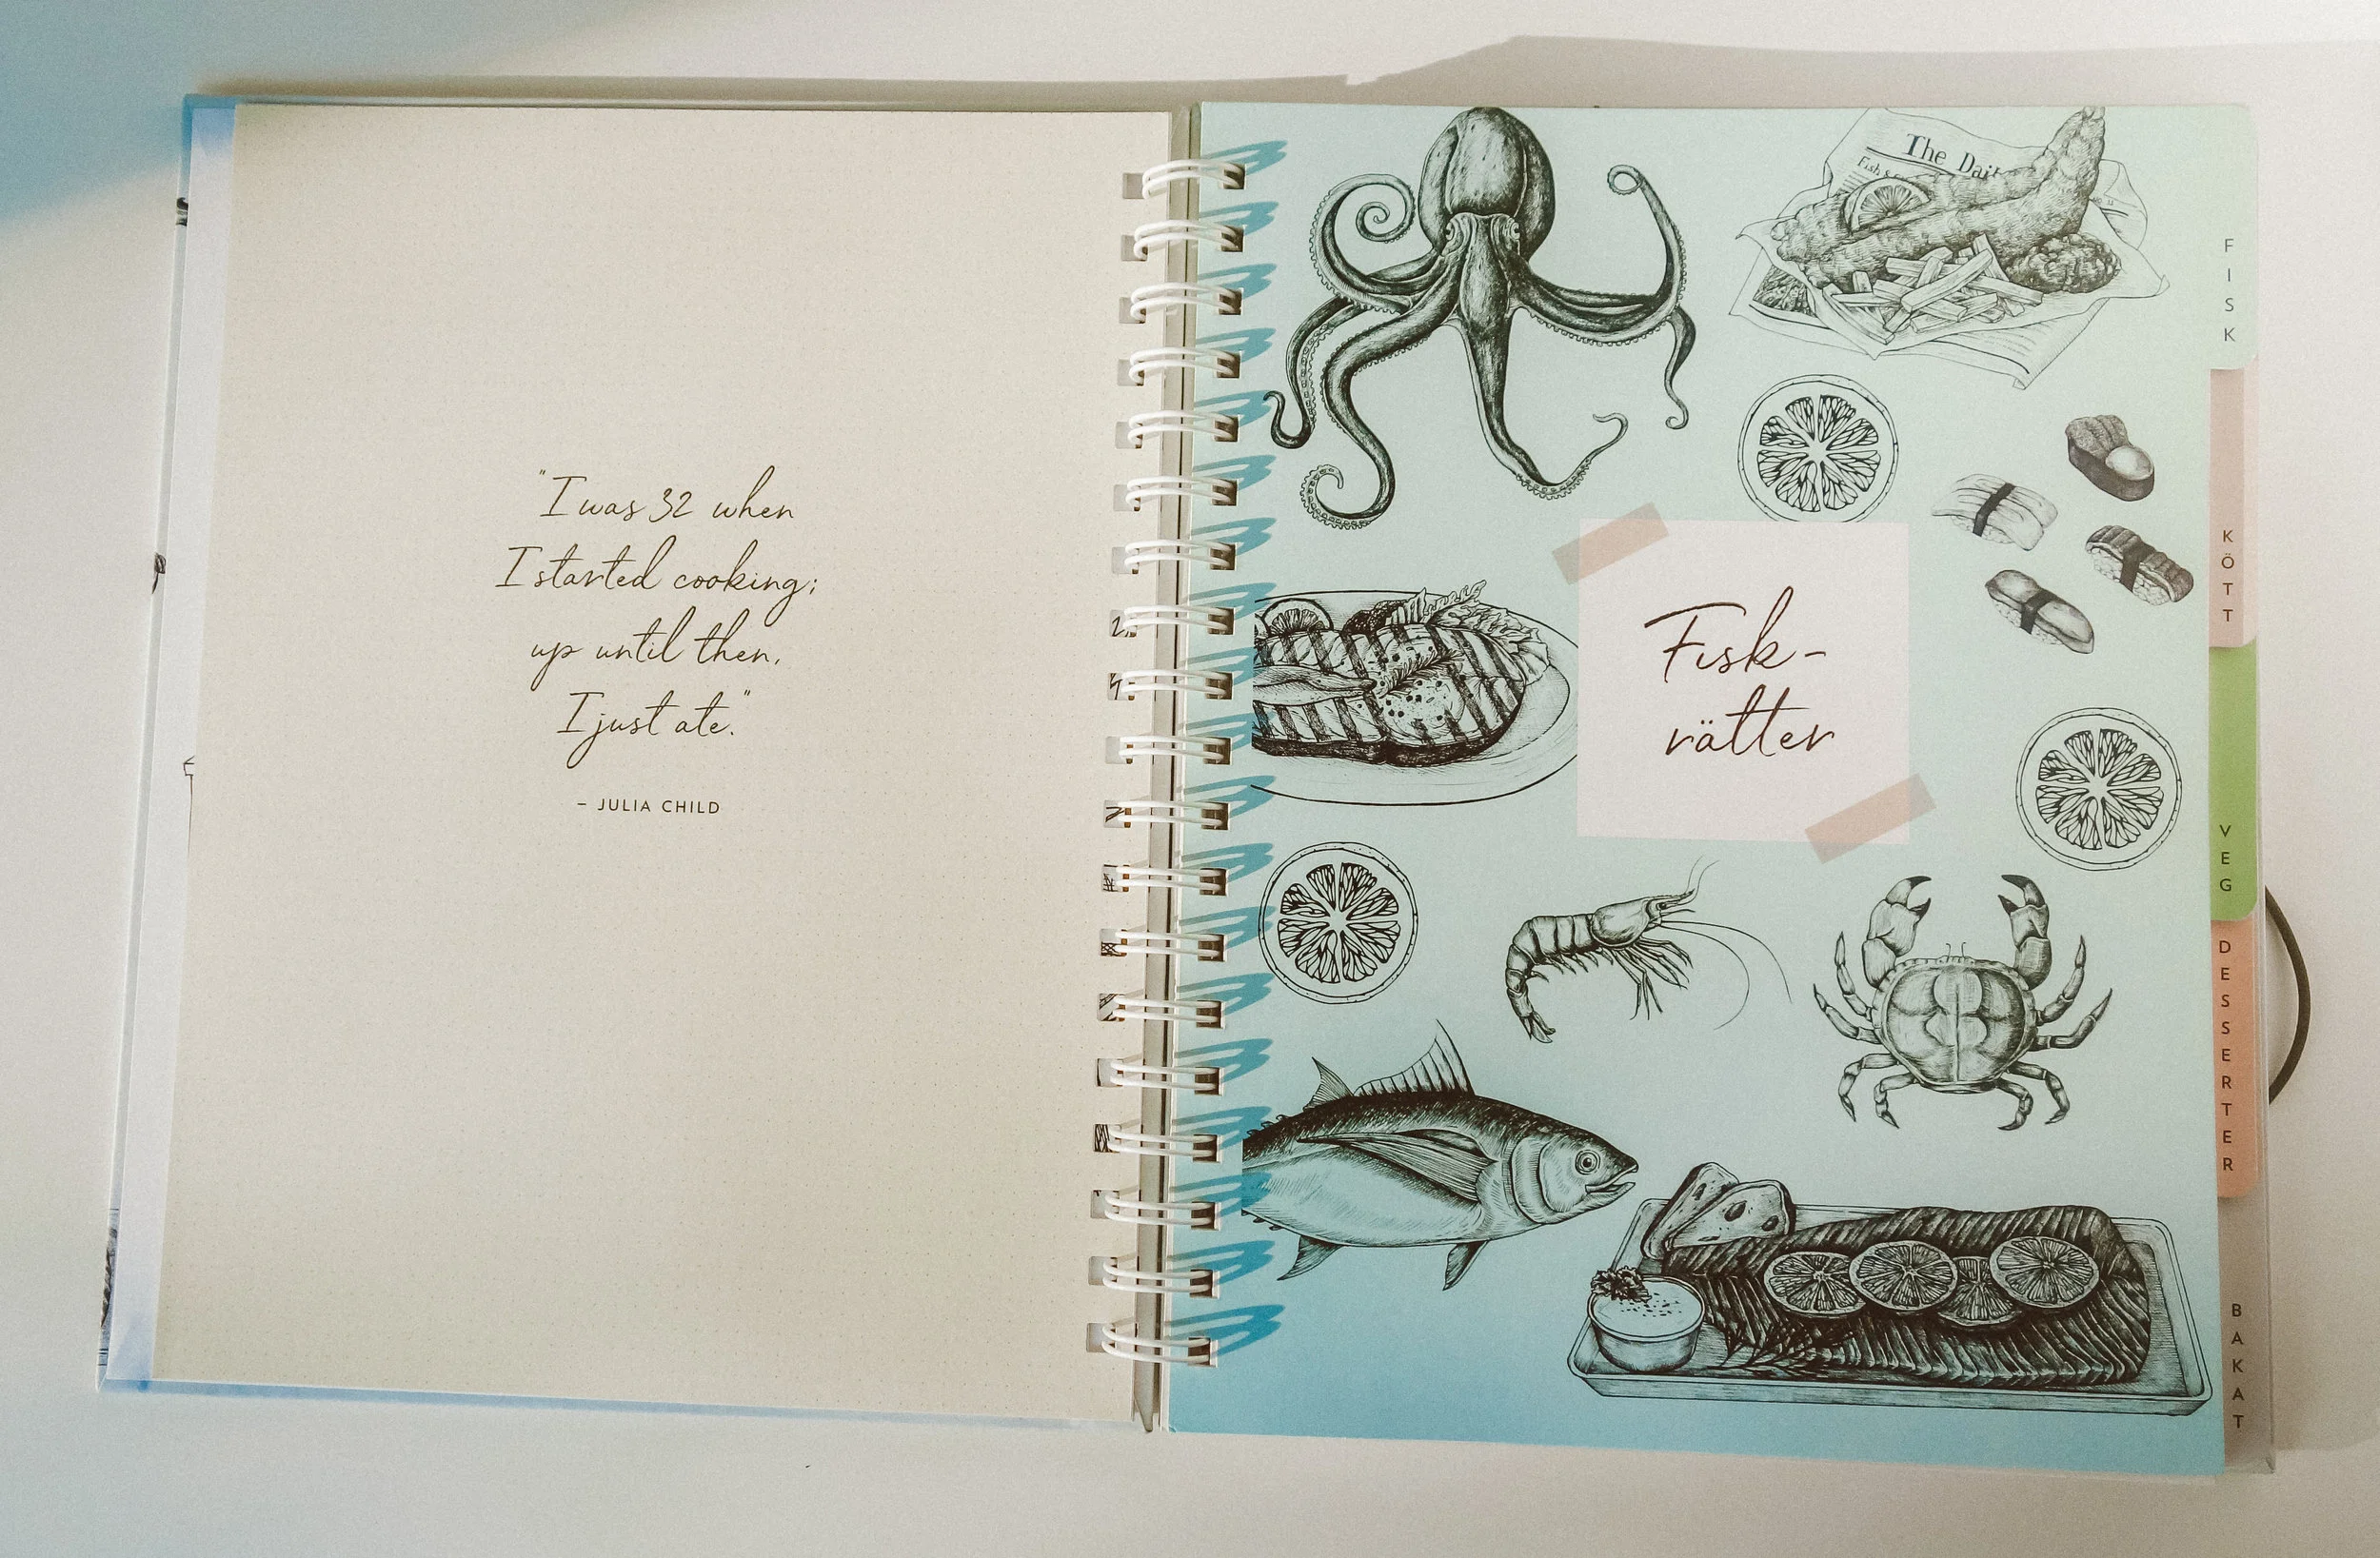 "I was 32 when
I started cooking;
up until then,
I just ate."
– JULIA CHILD
The Dai
Fish &
Fisk-
rätter
FISK
KÖTT
VEG
DESSERTER
BAKAT